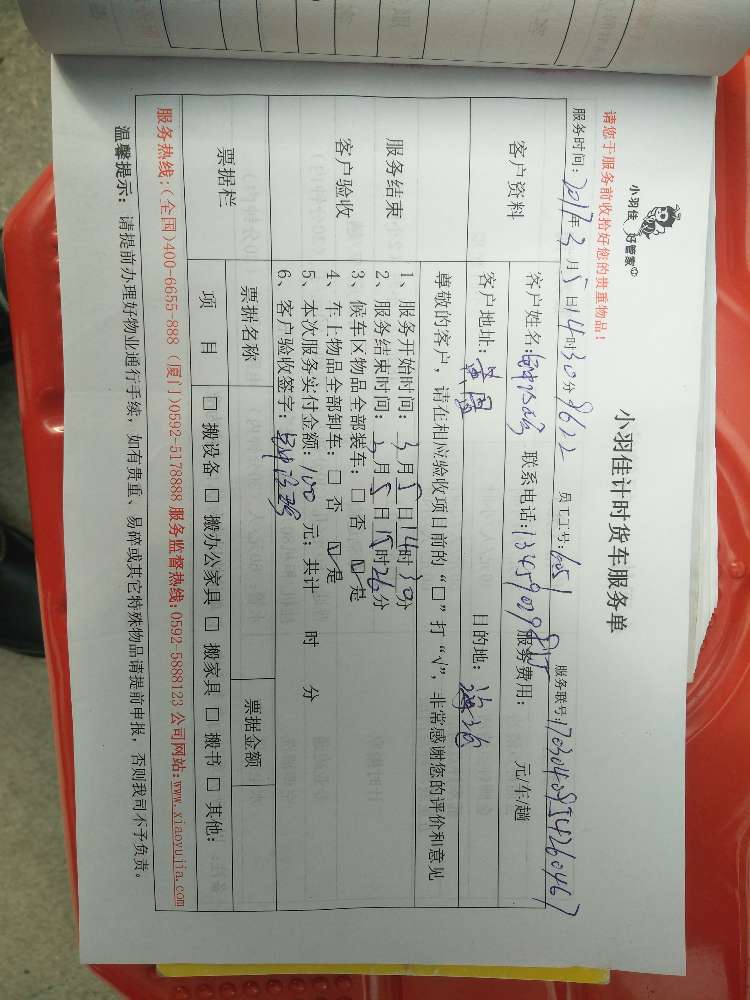 小羽佳 好管家
小羽佳计时货车服务单
请您于服务前收拾好您的贵重物品！
服务时间：2017年3月5日14时30分 员工工号：6051 服务联号：
客户资料
客户姓名： 联系电话： 服务费用： 元/车/趟
客户地址： 目的地：
服务结束
客户验收
尊敬的客户，请在相应验收项目前的“□”打“√”，非常感谢您的评价和意见
1、服务开始时间：3月5日14时30分
2、服务结束时间：3月5日15时26分
3、候车区物品全部装车：□否 ☑是
4、车上物品全部卸车：□否 ☑是
5、本次服务实付金额：100元；共计 时 分
6、客户验收签字：
票据栏
票据名称 票据金额
项 目 □搬设备 □搬办公家具 □搬家具 □搬书 □其他：
服务热线：(全国)400-6655-888 (厦门)0592-5178888 服务监督热线：0592-5888123 公司网站：www.xiaoyujia.com
温馨提示：请提前办理好物业通行手续，如有贵重、易碎或其它特殊物品请提前申报，否则我司不予负责。